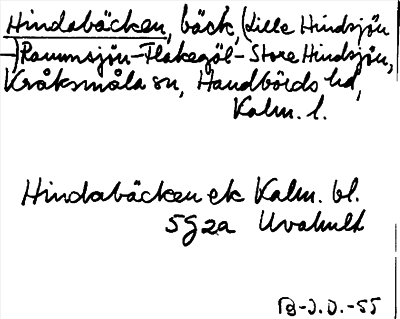 Hindabäcken, bäck, (Lille Hindsjön
–)Rammsjön–Flakegöl–Store Hindsjön,
Kråksmåla sn, Handbörds hd,
Kalm. l.
Hindabäcken ek Kalm. bl.
5G2a Uvahult